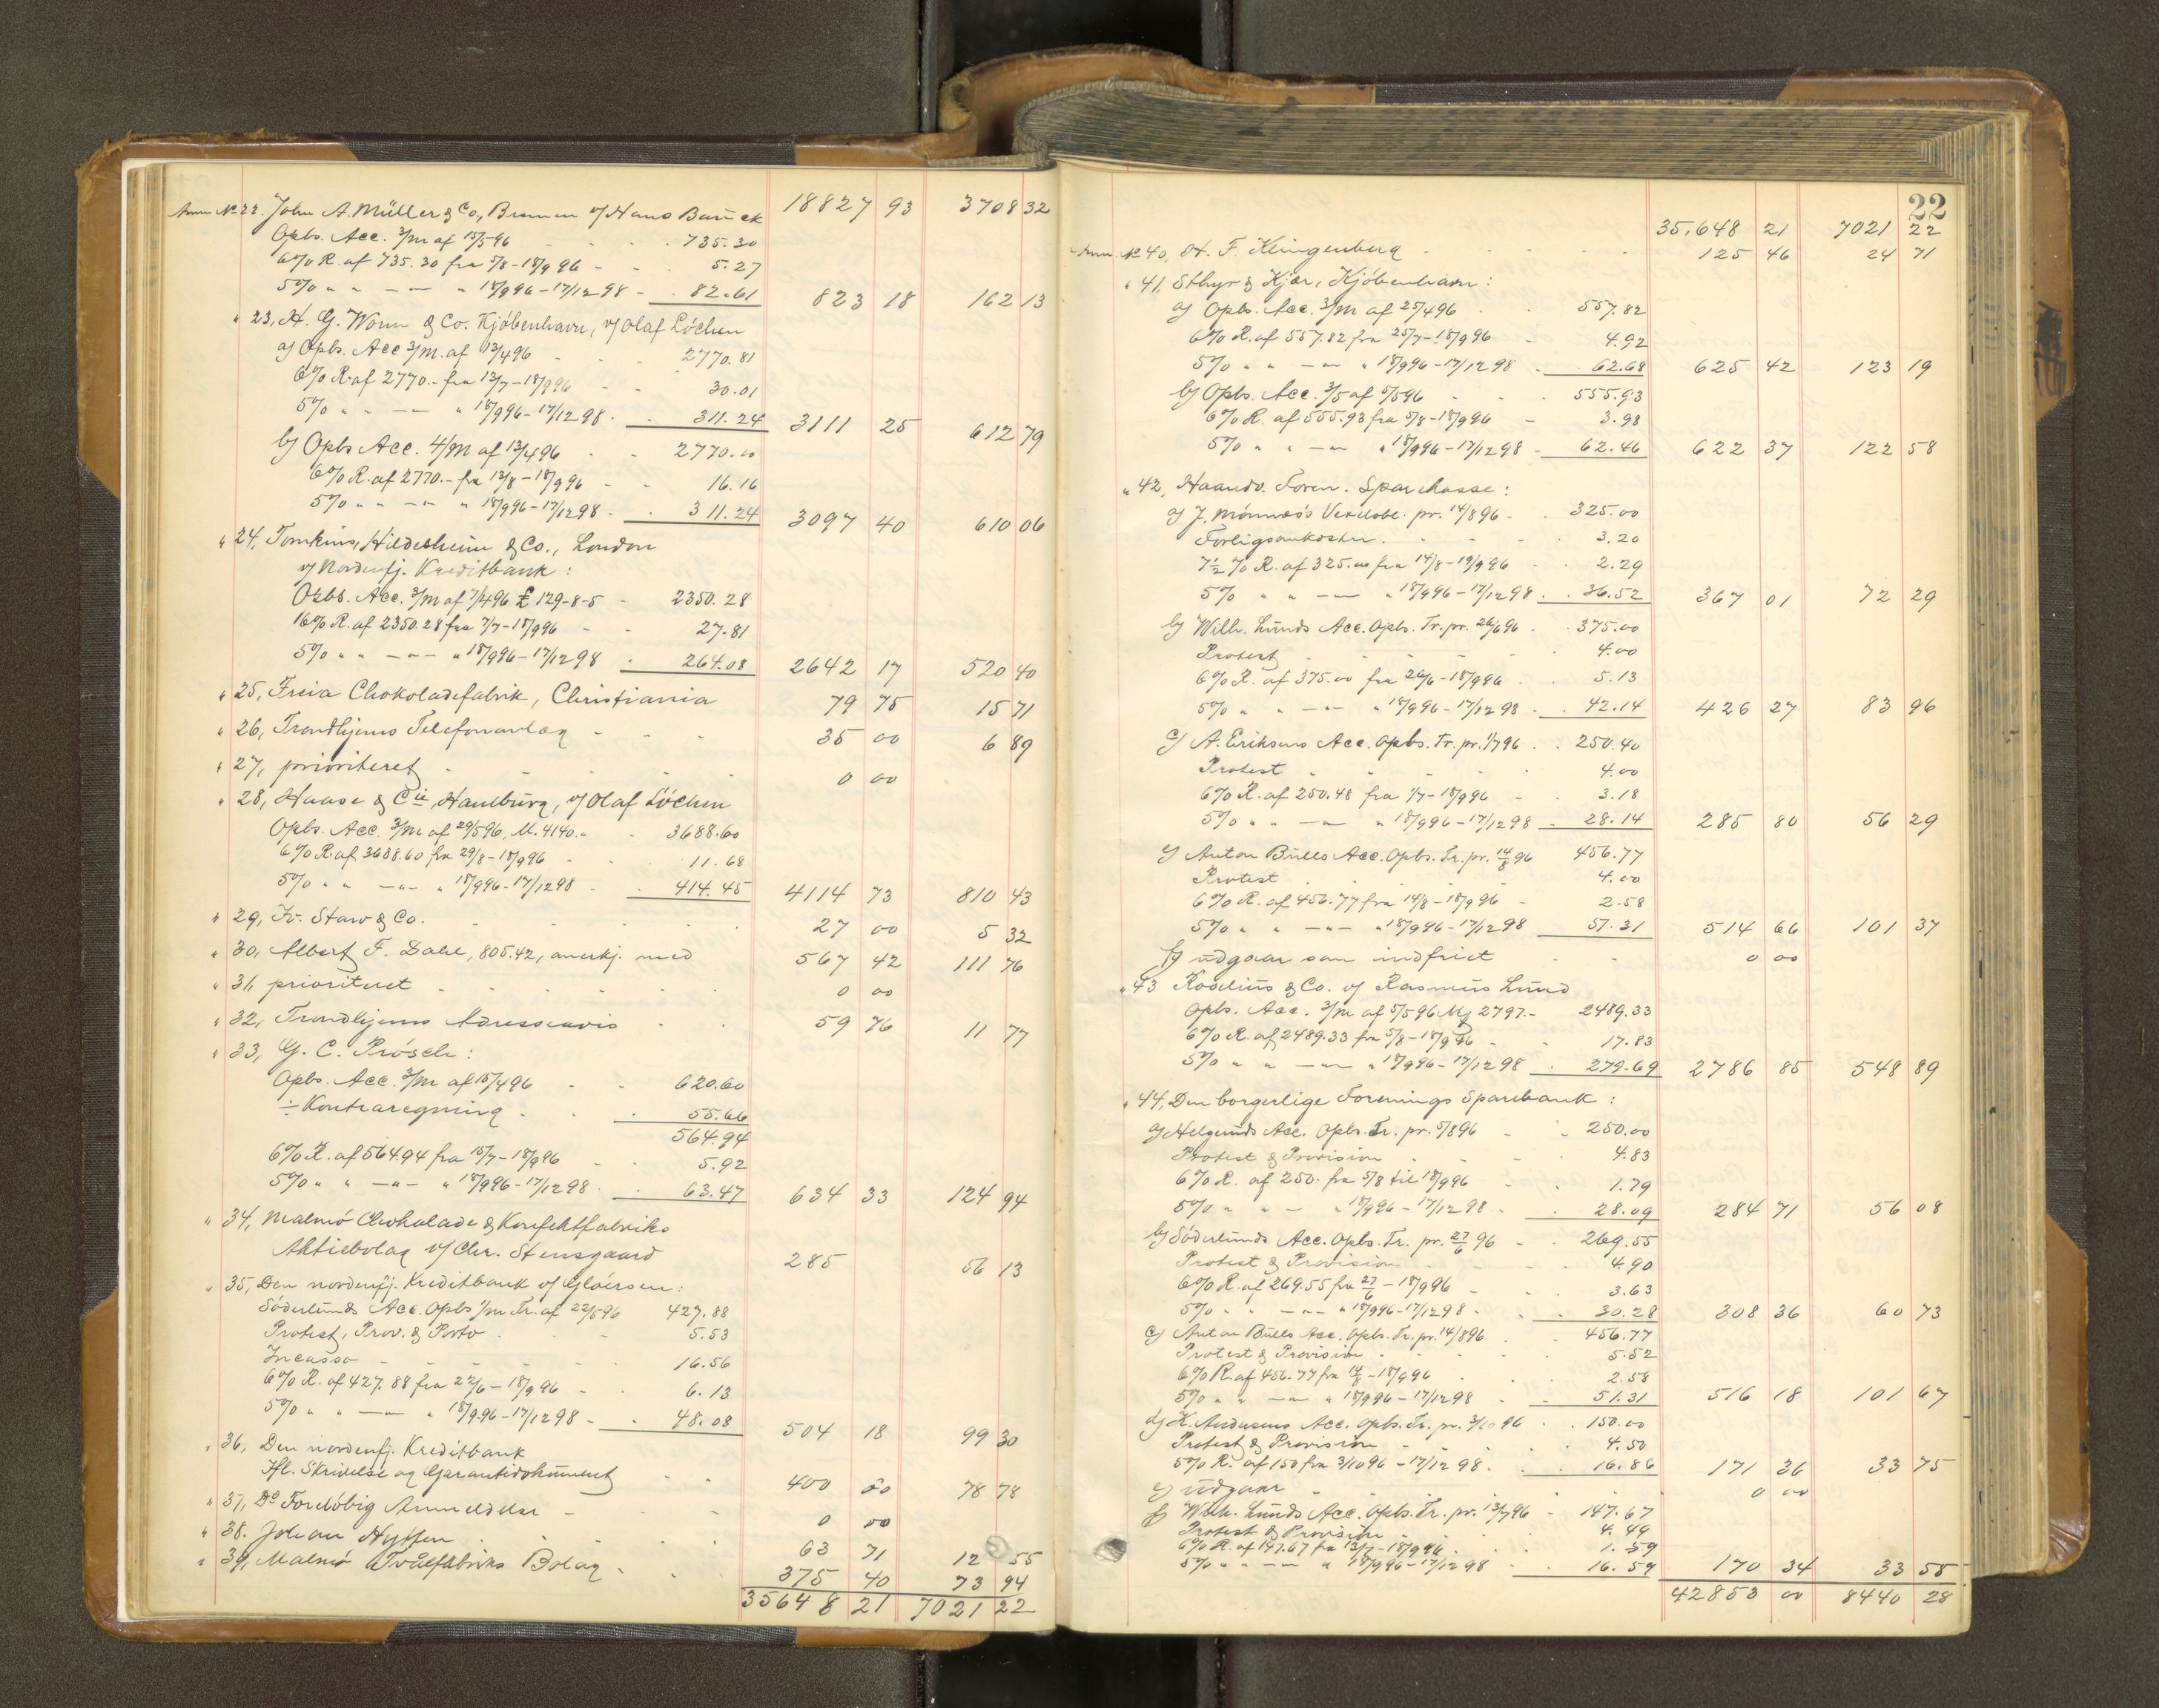 18827 93 3708 32
Anm. No 22. John A. Müller & Co, Bremen v/ Hans Bauck
Opbs. Acc. 3/m af 15/5 96 735.30
6% R. af 735.30 fra 5/8 - 18/9 96 - 5.27
5% " " — " — " 18/9 96 - 17/12 98 - 82.61 823 18 162 13
" 23, H. G. Worm & Co. Kjöbenhavn, v/ Olaf Löchen
a) Opbs. Acc 3/M. af 13/4 96 2770.81
6% R. af 2770.- fra 13/7 - 18/9 96 30.01
5% " " — " — " 18/9 96 - 17/12 98. 311.24 3111 25 612 79
b) Opbs Acc. 4/M af 13/4 96 2770.00
6% R. af 2770.- fra 13/8 - 18/9 96 16.16
5% " " — " — " 18/9 96 - 17/12 98. 311.24 3097 40 610 06
" 24, Tomkins, Hildesheim & Co., London
v/ Nordenfj. Kreditbank :
Opbs. Acc. 3/m af 7/4 96 £ 129-8-5 - 2350.28
6% R. af 2350.28 fra 7/7 - 18/9 96 27.81
5% " " — " — " 18/9 96 - 17/12 98 264.08 2642 17 520 40
" 25, Freia Chokoladefabrik, Christiania 79 75 15 71
" 26, Trondhjems Telefonanlæg 35 00 6 89
" 27, prioriteret 0 00
" 28, Haase & Cie, Hamburg, v/ Olaf Löchen
Opbs. Acc. 3/m af 29/5 96, M. 4140.- 3688.60
6% R. af 3688.60 fra 29/8 - 18/9 96 11.68
5% " " — " — " 18/9 96 - 17/12 98 414.45 4114 73 810 43
" 29, Fr. Staw & Co. 27 00 5 32
" 30, Albert F. Dahl, 805.42, anerkj. med 567 42 111 76
" 31, prioriteret 0 00
" 32, Trondhjems Adresseavis 59 76 11 77
" 33, G. C. Prösch :
Opbs. Acc. 3/m af 15/4 96 620.60
÷ Kontraregning 55.66
564.94
6% R. af 564.94 fra 15/7 - 18/9 96 5.92
5% " " — " — " 18/9 96 - 17/12 98. 63.47 634 33 124 94
" 34, Malmö Chokolade & Konfektfabriks
Aktiebolag v/ Chr. Stensgaard 285 56 13
" 35, Den nordenfj. Kreditbank v/ Gloersen :
Söderlunds Acc. Opbs 1/m Tr. af 22/5 96 427.88
Protest, Prov. & Porto 5.53
Incasso 16.56
6% R. af 427.88 fra 22/6 - 18/9 96 6.13
5% " " — " — " 18/9 96 - 17/12 98 - 48.08 504 18 99 30
" 36, Den nordenfj. Kreditbank
Ifl. Skrivelse og Garantidokument 400 00 78 78
" 37, Do Foreløbig Anmeldelse 0 00
" 38. Johan 63 71 12 55
" 39, Malmö Tvålfabriks Bolag 375 40 73 94
35648 21 7021 22
22
35.648 21 7021 22
Anm. No 40, H. F. Klingenberg 125 46 24 71
" 41, Sthyr & Kjær, Kjöbenhavn :
a) Opbs. Acc. 3/M af 25/4 96 557.82
6% R. af 557.82 fra 25/7 - 18/9 96 4.92
5% " " — " — " 18/9 96 - 17/12 98 62.68 625 42 123 19
b) Opbs. Acc. 3/5 af 5/5 96 555.93
6% R. af 555.93 fra 5/8 - 18/9 96 3.98
5% " " — " — " 18/9 96 - 17/12 98 - 62.46 622 37 122 58
" 42, Haandv. Foren. Sparekasse :
a) J. Mörmers Vexelobl. pr. 14/8 96 325.00
Forligsomkoster 3.20
7½% R. af 325.00 fra 14/8 - 19/9 96 2.29
5% " " — " — " 18/9 96 - 17/12 98 36.52 367 01 72 29
b) Wilh. Lunds Acc. Opbs. Tr. pr. 26/6 96 375.00
Protest 4.00
6% R. af 375.00 fra 26/6 - 18/9 96 5.13
5% " " — " — " 18/9 96 - 17/12 98 42.14 426 27 83 96
c) A. Eriksens Acc. Opbs. Tr. pr. 1/7 96 250.40
Protest 4.00
6% R. af 250.48 fra 1/7 - 18/9 96 3.18
5% " " — " — " 18/9 96 - 17/12 98 28.14 285 80 56 29
e) Anton Bulls Acc. Opbs. Tr. pr. 14/8 96 456.77
Protest 4.00
6% R. af 456.77 fra 14/8 - 18/9 96 2.58
5% " " — " — " 18/9 96 - 17/12 98 51.31 514 66 101 37
f) udgaar som indfriet 0 00
" 43 Roselius & Co. v/ Rasmus Lund
Opbs. Acc. 3/m af 5/5 96 Mk 2797.- 2489.33
6% R. af 2489.33 fra 5/8 - 18/9 96 17.83
5% " " — " — " 18/9 96 - 17/12 98 279.69 2786 85 548 89
" 44, Den borgerlige Forenings Sparebank :
a) Helgunds Acc. Opbs. Tr. pr. 5/8 96 250.00
Protest & Provision 4.83
6% R. af 250. fra 5/8 til 18/9 96 1.79
5% " " — " 18/9 96 - 17/12 98 28.09 284 71 56 08
b) Söderlunds Acc. Opbs. Tr. pr. 27/6 96 269.55
Protest & Provision 4.90
6% R. af 269.55 fra 27/6 - 18/9 96 3.63
5% " " — " — " 18/9 96 - 17/12 98 30.28 308 36 60 73
c) Anton Bulls Acc. Opbs. Tr. pr. 14/8 96 456.77
Protest & Provision 5.52
6% R. af 456.77 fra 14/8 - 18/9 96 2.58
5% " " — " — " 18/9 96 - 17/12 98 51.31 516 18 101 67
d) K. Andersens Acc. Opbs. Tr. pr. 3/10 96 150.00
Protest & Provision 4.50
5% R. af 150 fra 3/10 96 - 17/12 98. 16.86 171 36 33 75
e) udgaar 0 00
f) Wilh. Lunds Acc. Opbs. Tr. pr. 13/7 96 147.67
Protest & Provision 4.49
6% R. af 147.67 fra 13/7 - 18/9 96 1.59
5% " " — " — " 18/9 96 - 17/12 98 16.59 170 34 33 55
42853 00 8440 28